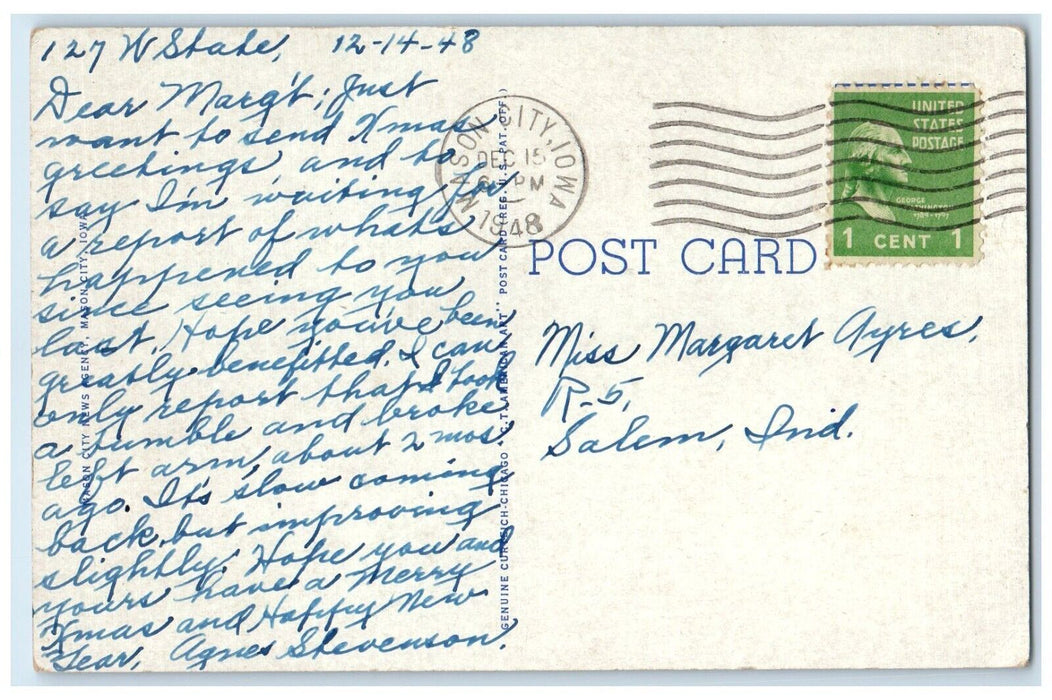 127 W State, 12-14-48
Dear Marg't; Just
want to send Xmas
greetings, and to
say I'm waiting for
a report of whats
happened to you
since seeing you
last. Hope you've been
greatly benefitted. I can
only report that I took
a tumble and broke
left arm, about 2 mos.
ago. It's slow coming
back, but improving
slightly. Hope you and
yours have a Merry
Xmas and Happy New
Year, Agnes Stevenson.
MASON CITY NEWS AGENCY, MASON CITY, IOWA
GENUINE CURTEICH-CHICAGO "C.T. AMERICAN ART" POST CARD (REG. U.S. PAT. OFF.)
MASON CITY, IOWA
DEC 15
PM
1948
UNITED
STATES
POSTAGE
GEORGE
WASHINGTON
1 CENT 1
POST CARD
Miss Margaret Ayres,
R-5,
Salem, Ind.